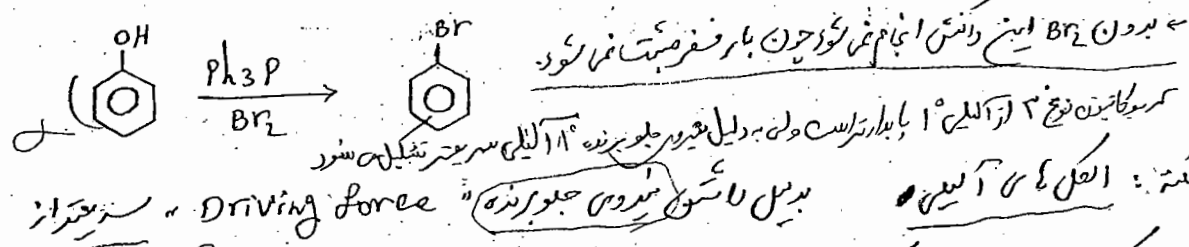 OH
Ph3P
Br2
Br
← بدون Br2 این واکنش انجام نمی شود چون بار فسفر مثبت نمی شود.
کربوکاتیون نوع ۳ از آلیلی 1° پایدارتر است ولی به دلیل نیروی جلو برنده 1° آلیلی سریعتر تشکیل می شود
نکته: الکل های آلیلی بدلیل داشتن نیروی جلو برنده "Driving force" سریعتر از